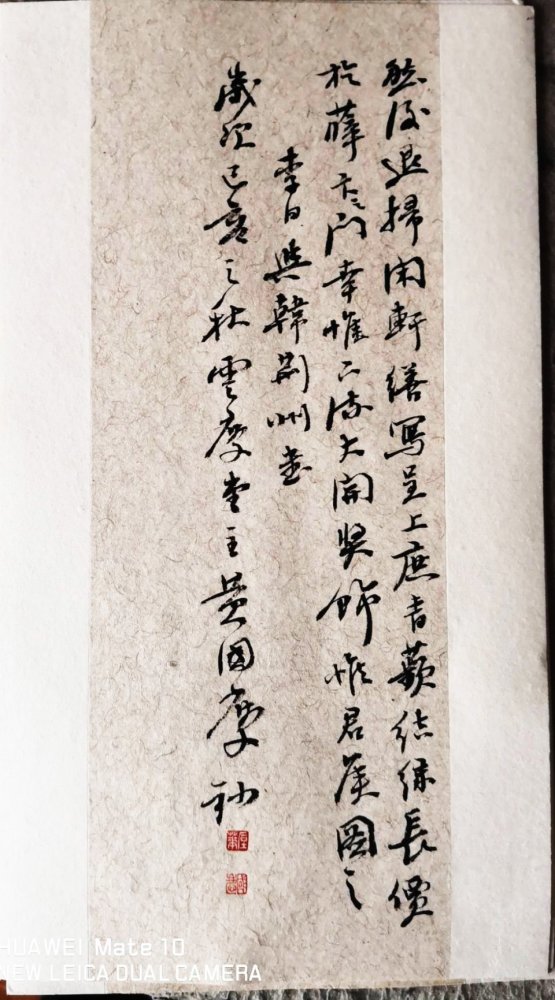 然後退掃閑軒繕寫呈上庶青蘋結綠長價
於薛卞之門幸惟下流大開獎飾惟君侯圖之
李白與韓荆州書
歲次己亥之秋雲慶堂主黃國慶鈔
HUAWEI Mate 10
NEW LEICA DUAL CAMERA